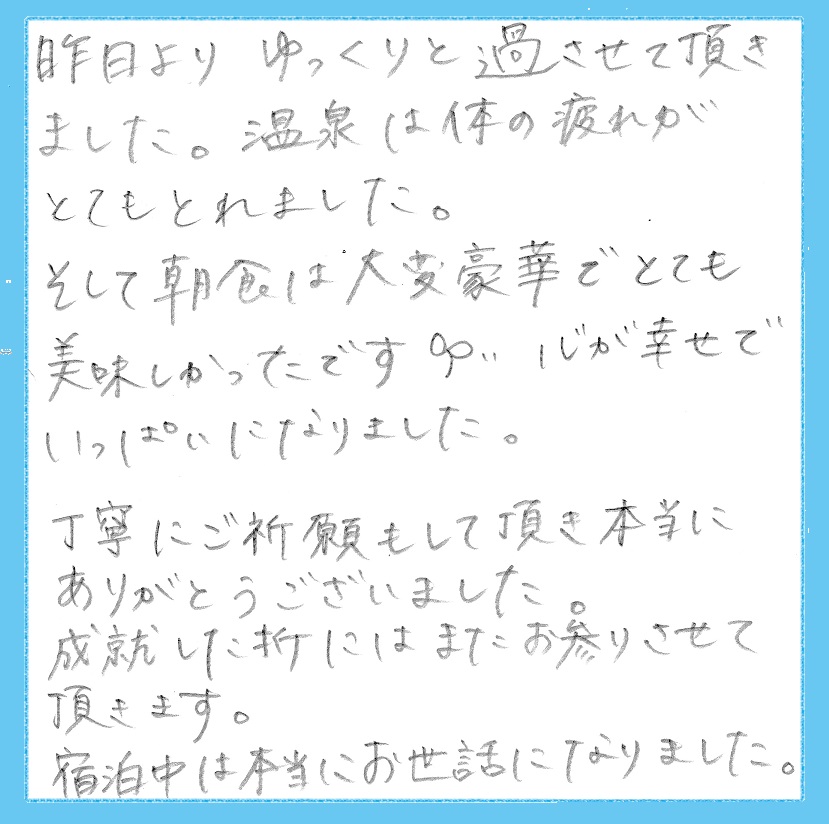 昨日より ゆっくりと過させて頂き
ました。温泉は体の疲れが
とてもとれました。
そして朝食は大変豪華でとても
美味しかったです 心が幸せで
いっぱいになりました。
丁寧にご祈願もして頂き本当に
ありがとうございました。
成就した折にはまたお参りさせて
頂きます。
宿泊中は本当にお世話になりました。